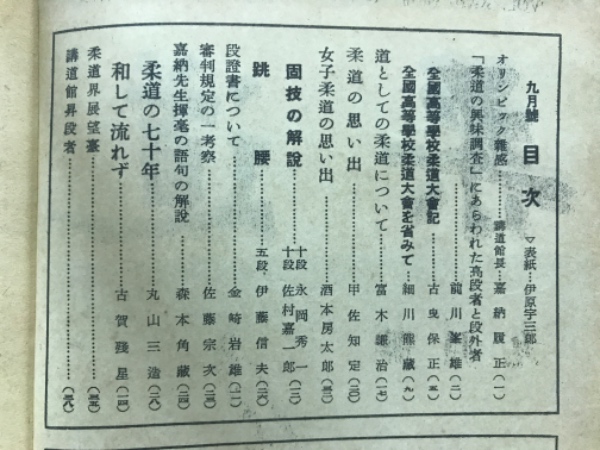 九月號 目次 ▽表紙…伊原宇三郎
オリンピック雜感…………講道館長…嘉納履正(一)
「柔道の興味調査」にあらわれた高段者と段外者
…………前川峯雄(二)
全國高等學校柔道大會記…………古曳保正(五)
全國高等學校柔道大會を省みて…細川熊藏(九)
道としての柔道について…………富木謙治(一七)
柔道の思い出…………甲佐知定(三〇)
女子柔道の思い出…………酒本房太郎(三三)
固技の解說…………十段 永岡秀一 十段 佐村嘉一郎(一二)
跳腰…………五段、伊藤信夫(二六)
段證書について…………金崎岩雄(二一)
審判規定の一考察…………佐藤宗次(二三)
嘉納先生揮毫の語句の解說……森本角藏(二四)
柔道の七十年…………丸山三造(二八)
和して流れず…………古賀殘星(一四)
柔道界展望臺…………(三五)
講道館昇段者…………(三八)